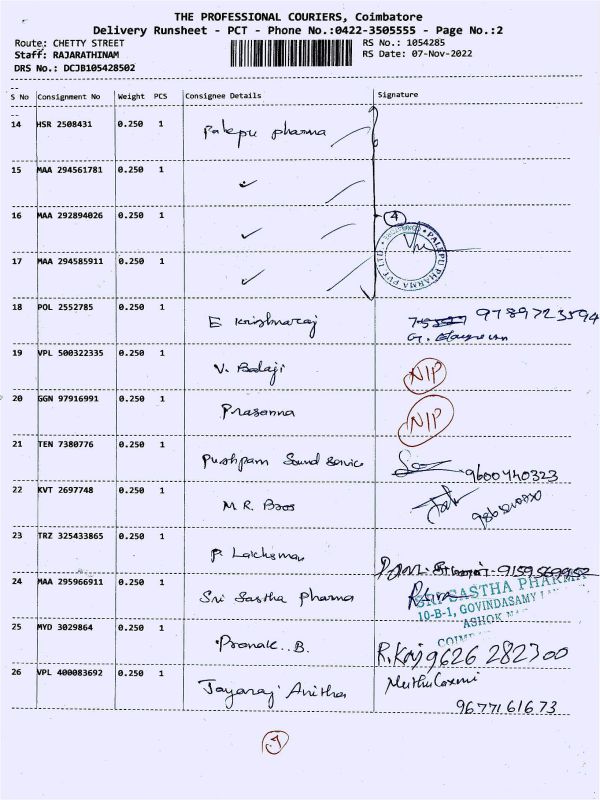 THE PROFESSIONAL COURIERS, Coimbatore
Delivery Runsheet - PCT - Phone No.:0422-3505555 - Page No.:2
Route: CHETTY STREET RS No.: 1054285
Staff: RAJARATHINAM RS Date: 07-Nov-2022
DRS No.: DCJB105428502
S No Consignment No Weight PCS Consignee Details Signature
14 HSR 2508431 0.250 1 Palepu pharma
15 MAA 294561781 0.250 1
16 MAA 292894026 0.250 1 4
PALEPU PHARMA PVT LTD
17 MAA 294585911 0.250 1
18 POL 2552785 0.250 1 E Krishnaraj 9789723594
19 VPL 500322335 0.250 1 V. Balaji N/P
20 GGN 97916991 0.250 1 Prasanna N/P
21 TEN 7380776 0.250 1 Pushpam Sound Service 9600740323
22 KVT 2697748 0.250 1 M.R. Boos
23 TRZ 325433865 0.250 1 P. Lakshman
24 MAA 295966911 0.250 1 Sri Sastha Pharma
SRI SASTHA PHARMA
10-B-1, GOVINDASAMY
ASHOK
25 MYD 3029864 0.250 1 Pronak.. B. R.Krj 9626 282300
26 VPL 400083692 0.250 1 Jayaraj Anitha Muthulaxmi
9677161673
7